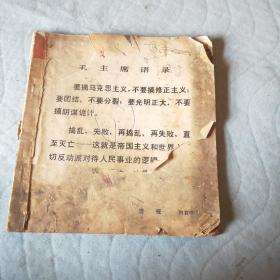 毛主席语录
要搞马克思主义，不要搞修正主义；
要团结，不要分裂；要光明正大，不要
搞阴谋诡计。
捣乱，失败，再捣乱，再失败，直
至灭亡——这就是帝国主义和世界
切反动派对待人民事业的逻辑